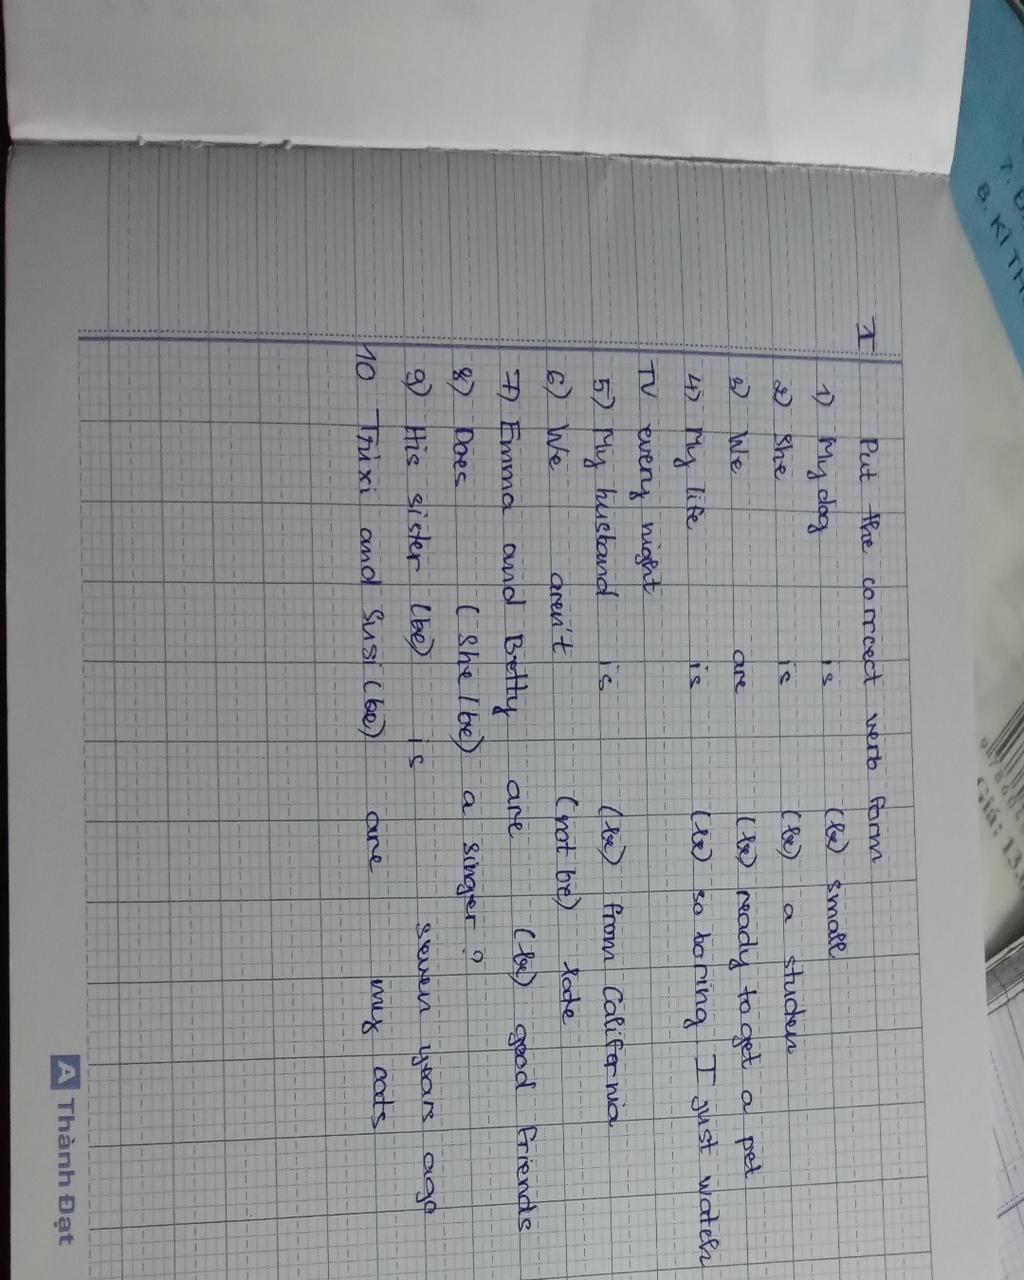 I Put the correct verb form
1) My dog is (be) small
2) She is (be) a studen
3) We are (be) ready to get a pet
4) My life is (be) so boring I just watch
TV every night
5) My husband is (be) from California
6) We aren't (not be) late
7) Emma and Betty are (be) good friends
8) Does (she/be) a singer?
9) His sister (be) is seven years ago
10 Trixi and Susi (be) are my cats
A Thành Đạt
8. KĨ TH
Giá: 13.